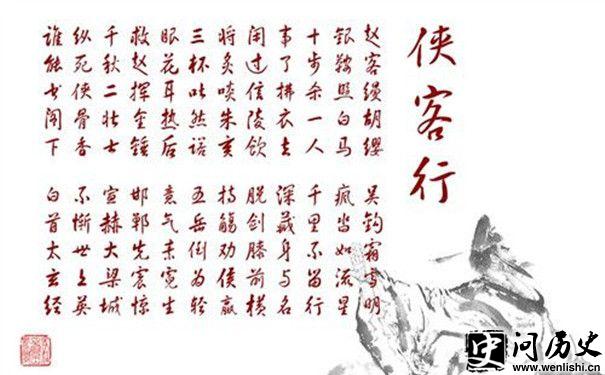 侠客行
赵客缦胡缨
吴钩霜雪明
银鞍照白马
飒沓如流星
十步杀一人
千里不留行
事了拂衣去
深藏身与名
闲过信陵饮
脱剑膝前横
将炙啖朱亥
持觞劝侯嬴
三杯吐然诺
五岳倒为轻
眼花耳热后
意气素霓生
救赵挥金锤
邯郸先震惊
千秋二壮士
宣赫大梁城
纵死侠骨香
不惭世上英
谁能书阁下
白首太玄经
史问历史
www.wenlishi.cn